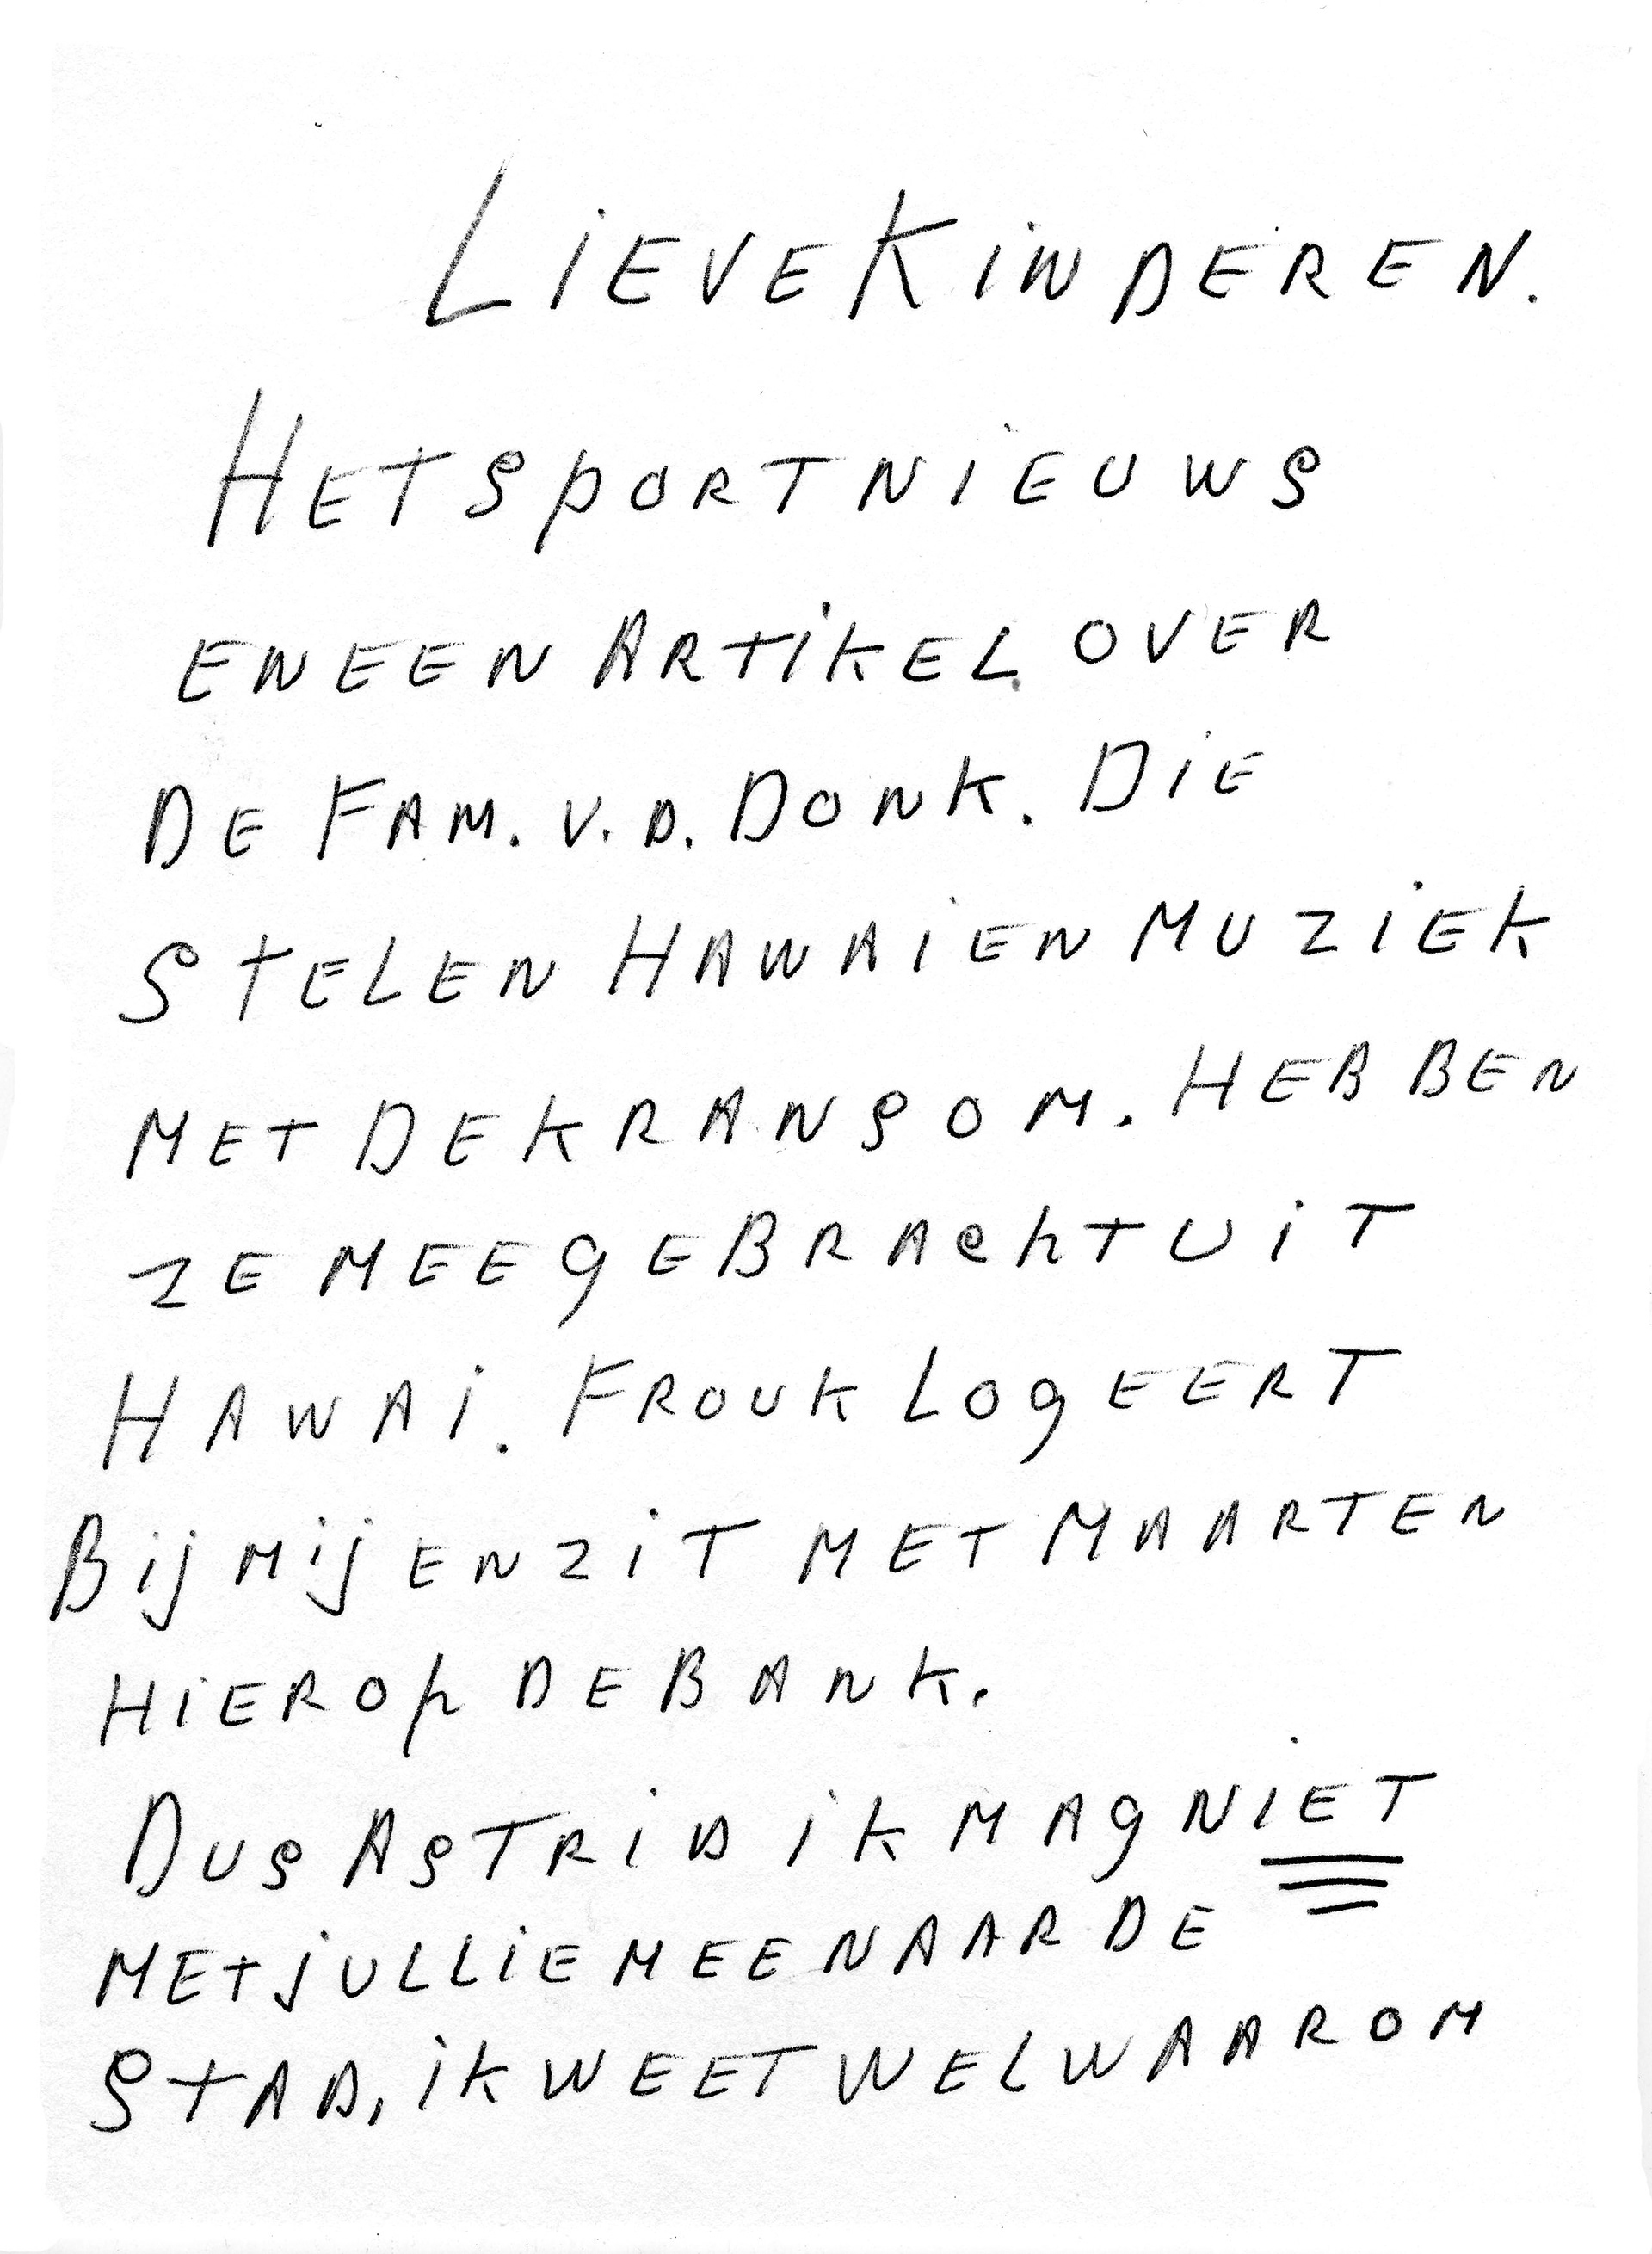 LIEVE KINDEREN.
HET SPORTNIEUWS
EN EEN ARTIKEL OVER
DE FAM. V.D. DONK. DIE
STELEN HAWAIEN MUZIEK
MET DE KRANS OM. HEBBEN
ZE MEEGEBRACHT UIT
HAWAI. FROUK LOGEERT
BIJ MIJ EN ZIT MET MAARTEN
HIER OP DE BANK.
DUS ASTRID IK MAG NIET
MET JULLIE MEE NAAR DE
STAD, IK WEET WEL WAAROM